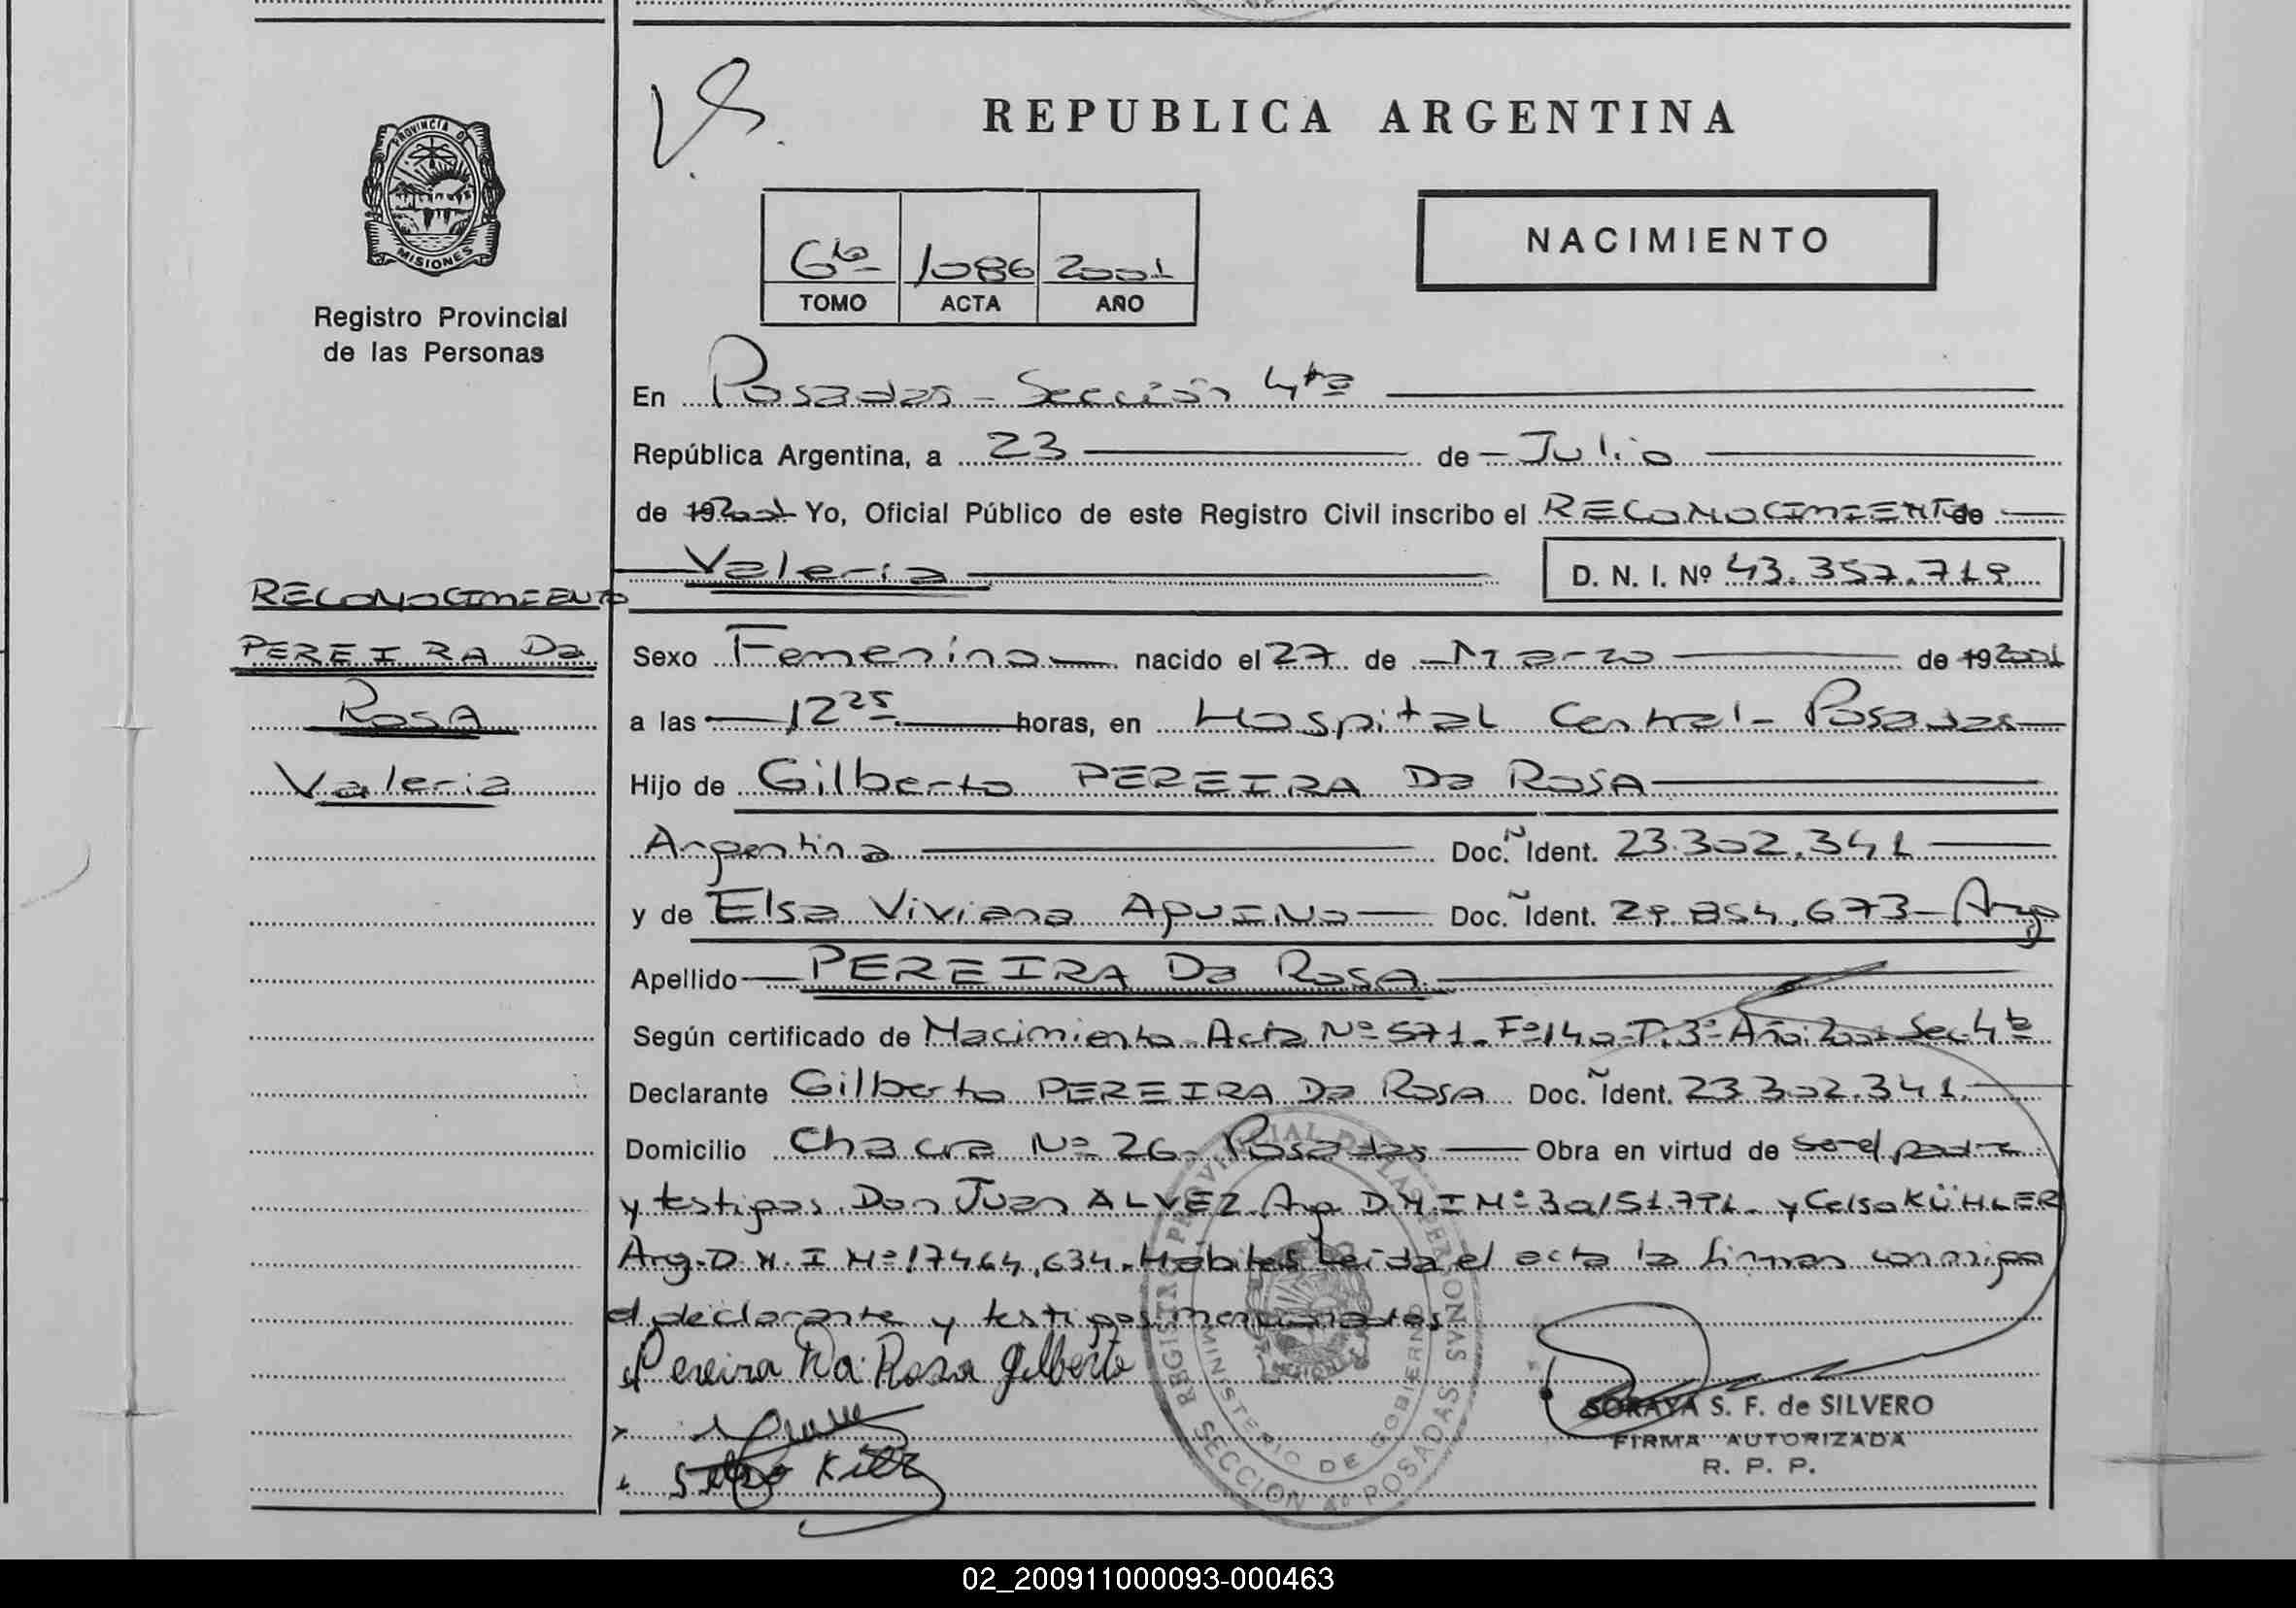 REPUBLICA ARGENTINA
PROVINCIA DE
MISIONES
Registro Provincial
de las Personas
6to 1086 2001
TOMO ACTA AÑO
NACIMIENTO
En Posadas - Sección 4ta
República Argentina, a 23 de Julio
de 192001 Yo, Oficial Público de este Registro Civil inscribo el RECONOCIMIENTO de
Valeria
D. N. I. Nº 43.357.719
RECONOCIMIENTO
PEREIRA Da
Rosa
Valeria
Sexo Femenino nacido el 27 de Marzo de 192001
a las 12 25 horas, en Hospital Central - Posadas
Hijo de Gilberto PEREIRA Da Rosa
Argentina Doc. Ñ Ident. 23.302.341
y de Elsa Viviana Aquino Doc. Ident. 29.854.673 - Arg
Apellido PEREIRA Da Rosa
Según certificado de Nacimiento Acta Nº 571. Fº 140 - T. 3º - Año 2001 Sec 4ta
Declarante Gilberto PEREIRA Da Rosa Doc. Ident. 23.302.341.
Domicilio Chacra Nº 26 - Posadas Obra en virtud de ser el padre
y testigos Don Juan ALVEZ Arg D.N.I Nº y Celso KÜHLER
Arg. D.N.I Nº 17464.634. Hábiles Leída el acta la firman conmigo
el declarante y testigos mencionados
Pereira Da Rosa Gilberto
REGISTRO PROVINCIAL DE LAS PERSONAS
MINISTERIO DE GOBIERNO
SECCION 4º POSADAS
SORAYA S. F. de SILVERO
FIRMA AUTORIZADA
R. P. P.
02_200911000093-000463